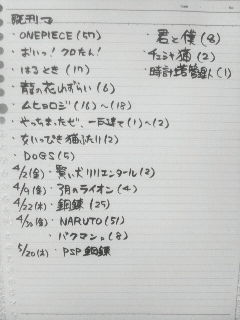 既刊→
・ONEPIECE(57)
・おいっ!クロたん!
・はるとき(17)
・龍の花わずらい(6)
・ムヒョロジ(16)〜(18)
・やっちまったぜ、一戸建て(1)〜(2)
・ないっぴき猫ふたり(2)
・DOGS(5)
4/2(金)・賢い犬リリエンタール(2)
4/9(金)・3月のライオン(4)
4/22(木)・鋼錬(25)
4/30(金)・NARUTO(51)
・バクマン。(8)
5/20(木)・PSP鋼錬
・君と僕(8)
・猫(2)
・時計塔管理人(1)